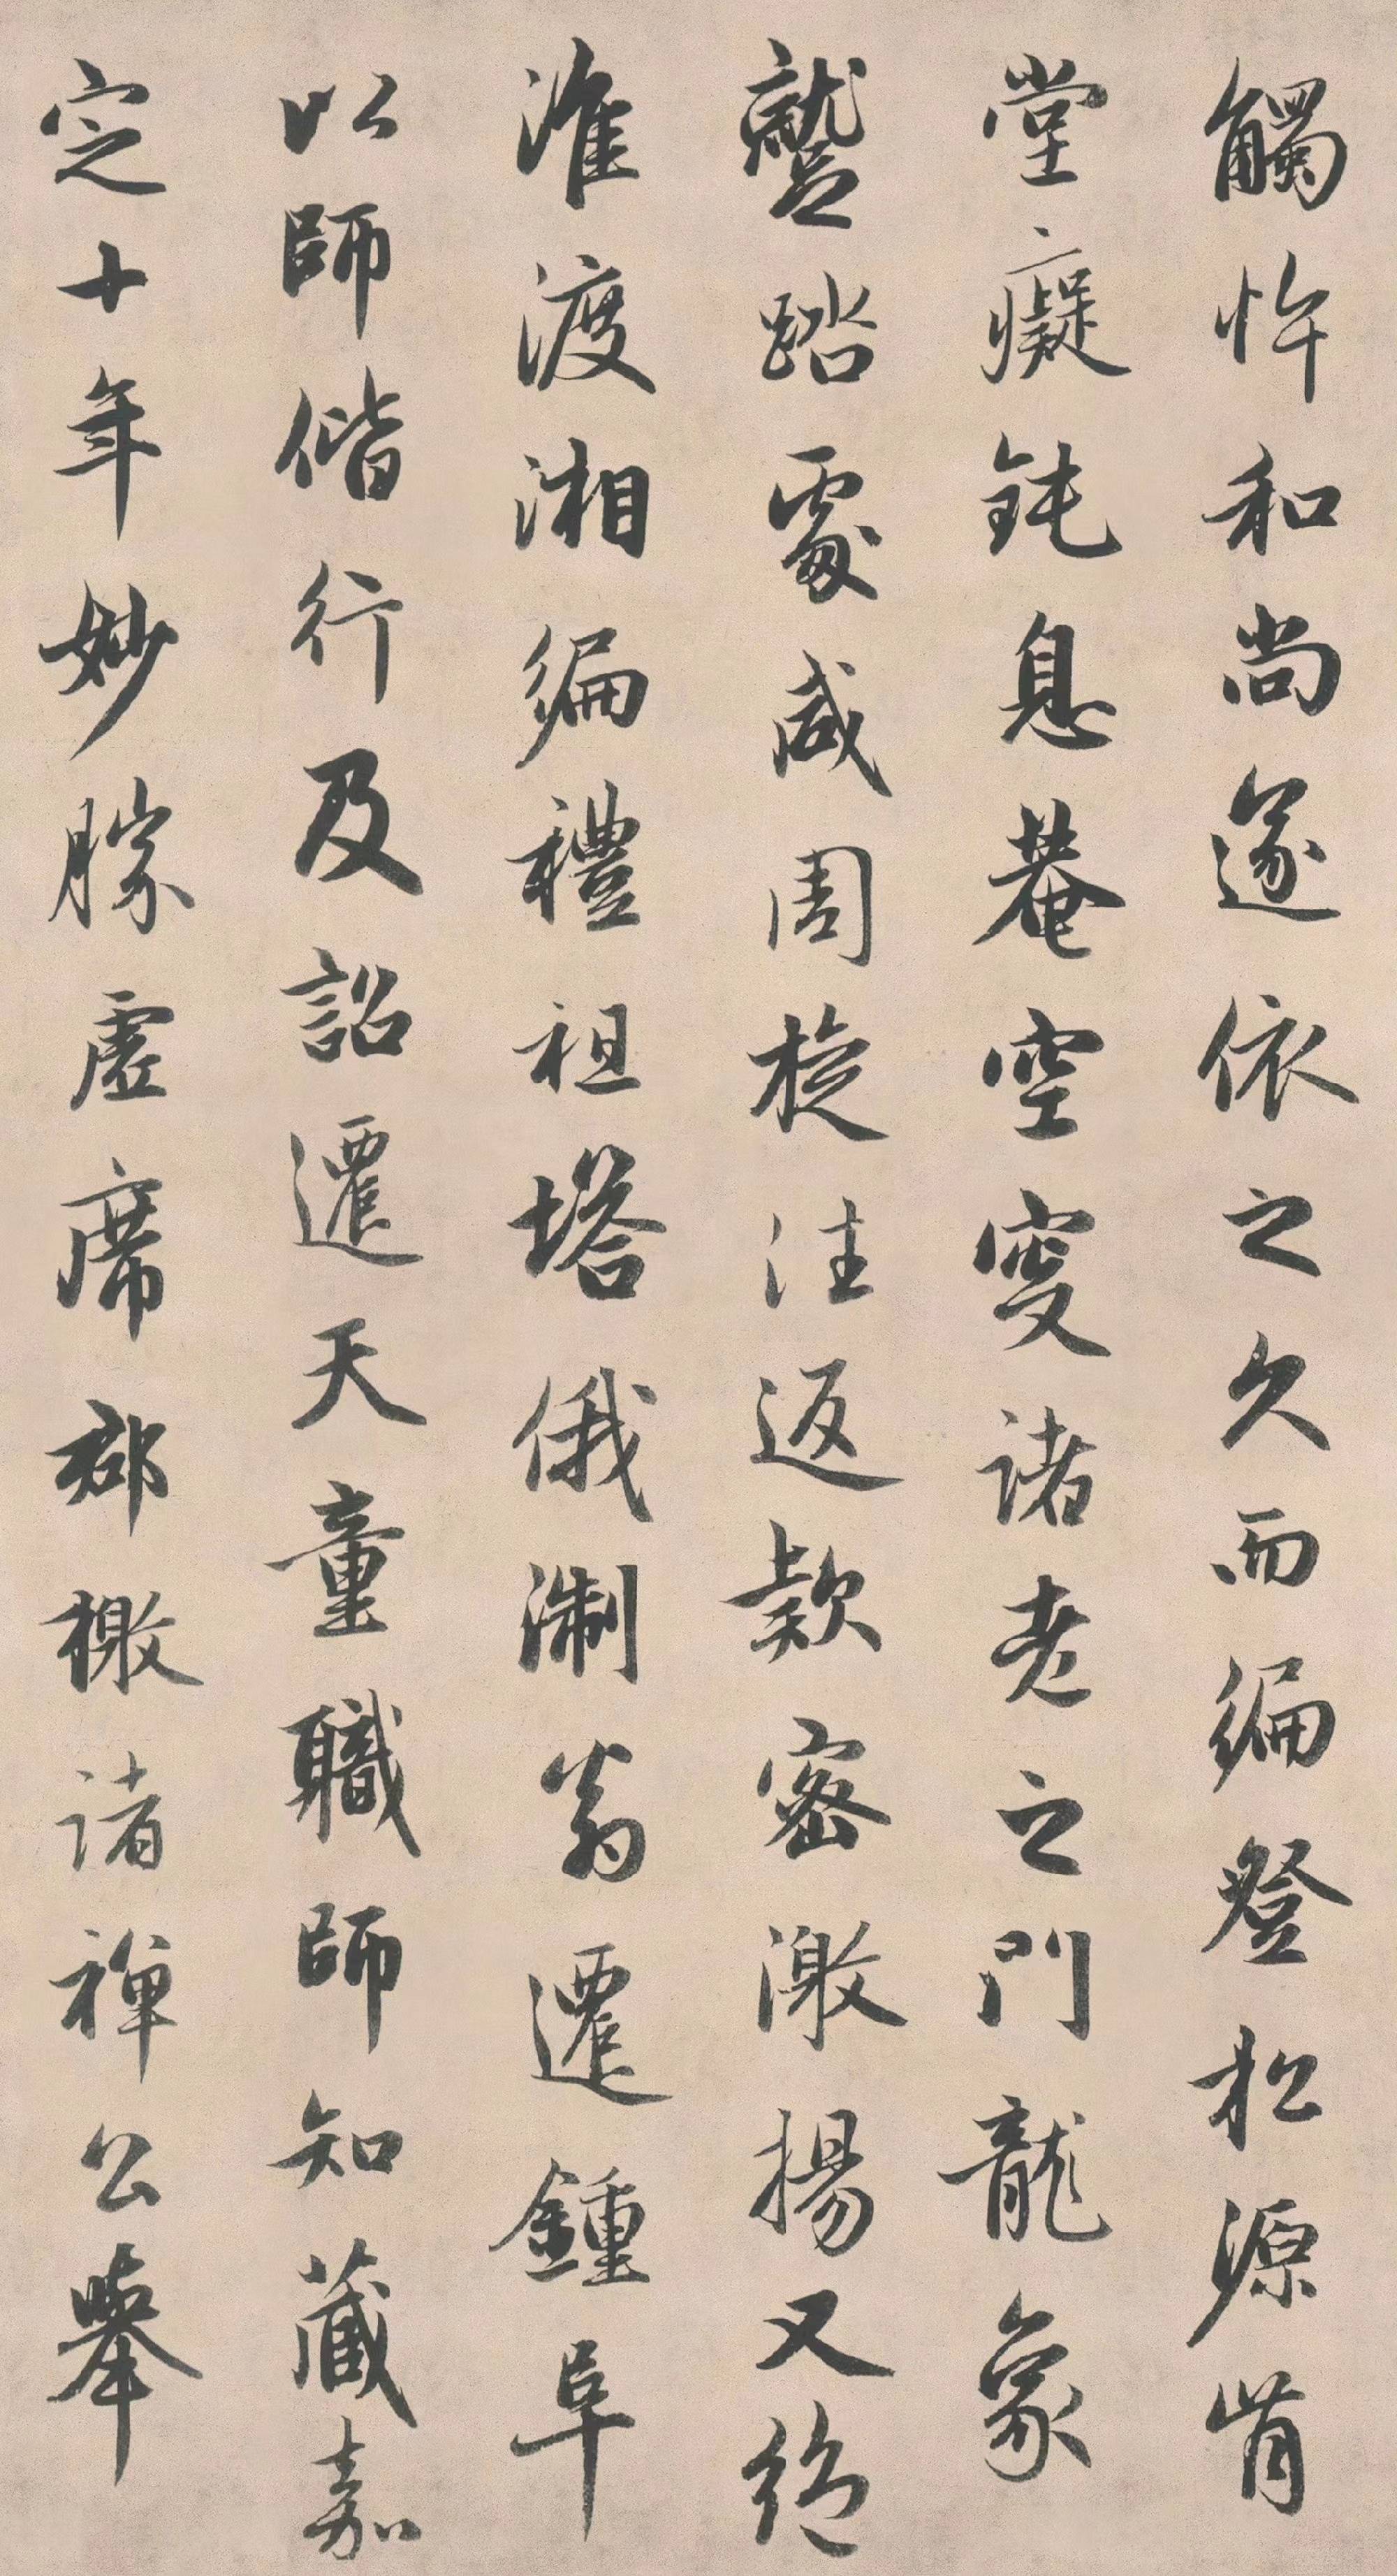 觸忤和尚遂依之久而徧登松源肯
堂癡鈍息菴空叟諸老之門龍象
蹵踏處咸周旋往返款密激揚又絶
淮渡湘徧禮祖塔俄淛翁遷鍾阜
以師偕行及詔遷天童職師知藏嘉
定十年妙勝虛席郡檄諸禪公舉